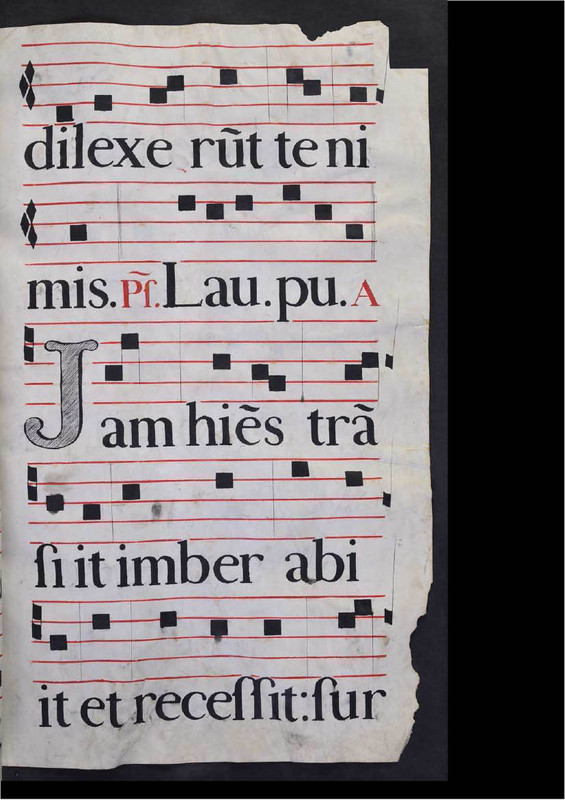 dilexe rũt te ni
mis. Ps̃. Lau. pu. A
Jam hiẽs trã
ſi it imber abi
it et receſſit: ſur